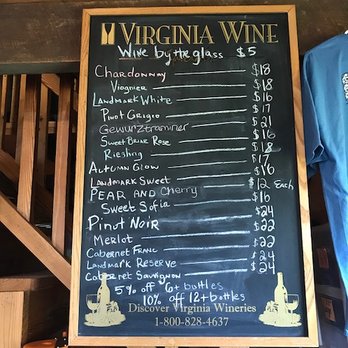 VIRGINIA WINE
Wine by the glass $5
Chardonnay $18
Viognier $18
Landmark White $16
Pinot Grigio $17
Gewurztraminer $21
Sweet Briar Rose $16
Riesling $18
Autumn Glow $17
Landmark Sweet $16
PEAR AND Cherry $12 Each
Sweet Sofia $16
Pinot Noir $24
Merlot $22
Cabernet Franc $22
Landmark Reserve $24
Cabernet Sauvignon $24
5% off 6+ bottles
10% off 12+ bottles
Discover Virginia Wineries
1-800-828-4637